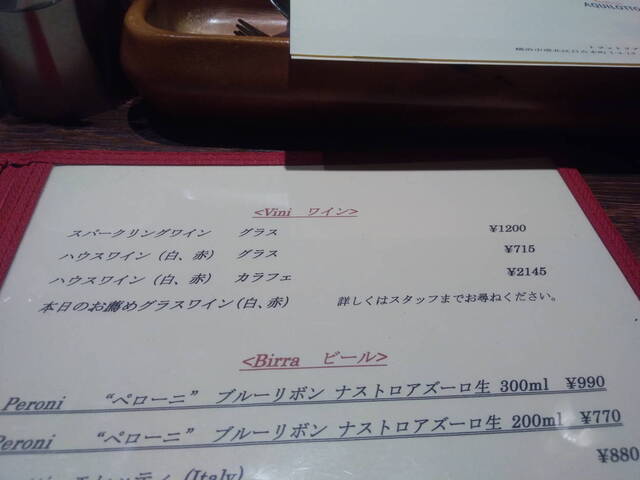 AQUILOTTO
<Vini ワイン>
スパークリングワイン グラス ¥1200
ハウスワイン (白、赤) グラス ¥715
ハウスワイン (白、赤) カラフェ ¥2145
本日のお薦めグラスワイン(白、赤) 詳しくはスタッフまでお尋ねください。
<Birra ビール>
Peroni “ペローニ” ブルーリボン ナストロアズーロ生 300ml ¥990
Peroni “ペローニ” ブルーリボン ナストロアズーロ生 200ml ¥770
(Italy) ¥880